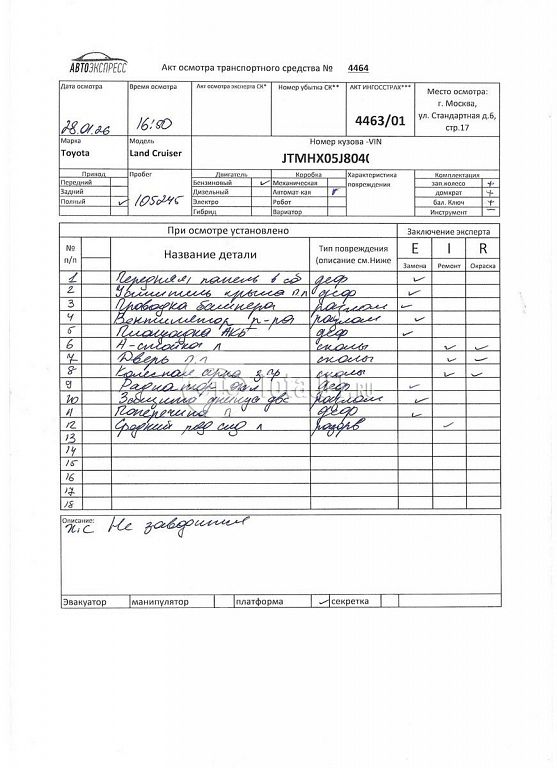 АВТОЭКСПРЕСС
Акт осмотра транспортного средства № 4464
Дата осмотра
Время осмотра
Акт осмотра эксперта СК*
Номер убытка СК**
АКТ ИНГОССТРАХ***
Место осмотра:
г. Москва,
ул. Стандартная д.6,
стр.17
28.01.26
16:50
4463/01
Марка
Модель
Номер кузова -VIN
Toyota
Land Cruiser
JTMHX05J804(
Привод
Пробег
Двигатель
Коробка
Характеристика
повреждения
Комплектация
Передний
Бензиновый ✓
Механическая
зап.колесо +
Задний
Дизельный
Автомат-кая ✓
домкрат +
Полный ✓
105245
Электро
Робот
бал. Ключ +
Гибрид
Вариатор
Инструмент –
При осмотре установлено
Заключение эксперта
№ п/п
Название детали
Тип повреждения
(описание см.Ниже
E I R
Замена Ремонт Окраска
1 Передняя панель в сб деф ✓
2 Усилитель крыла п.л деф ✓
3 Проводка бампера разлом ✓
4 Вентилятор р-ра разлом ✓
5 Площадка АКБ деф ✓
6 А-стойка л сколы ✓ ✓
7 Дверь п.л сколы ✓ ✓
8 Колесная арка з.пр сколы ✓ ✓
9 Радиатор деф ✓
10 Защита двс разлом ✓
11 Поперечина п деф ✓
12 Средний л ✓
13
14
15
16
17
18
Описание:
н.с Не заводится
Эвакуатор
манипулятор
платформа ✓
секретка